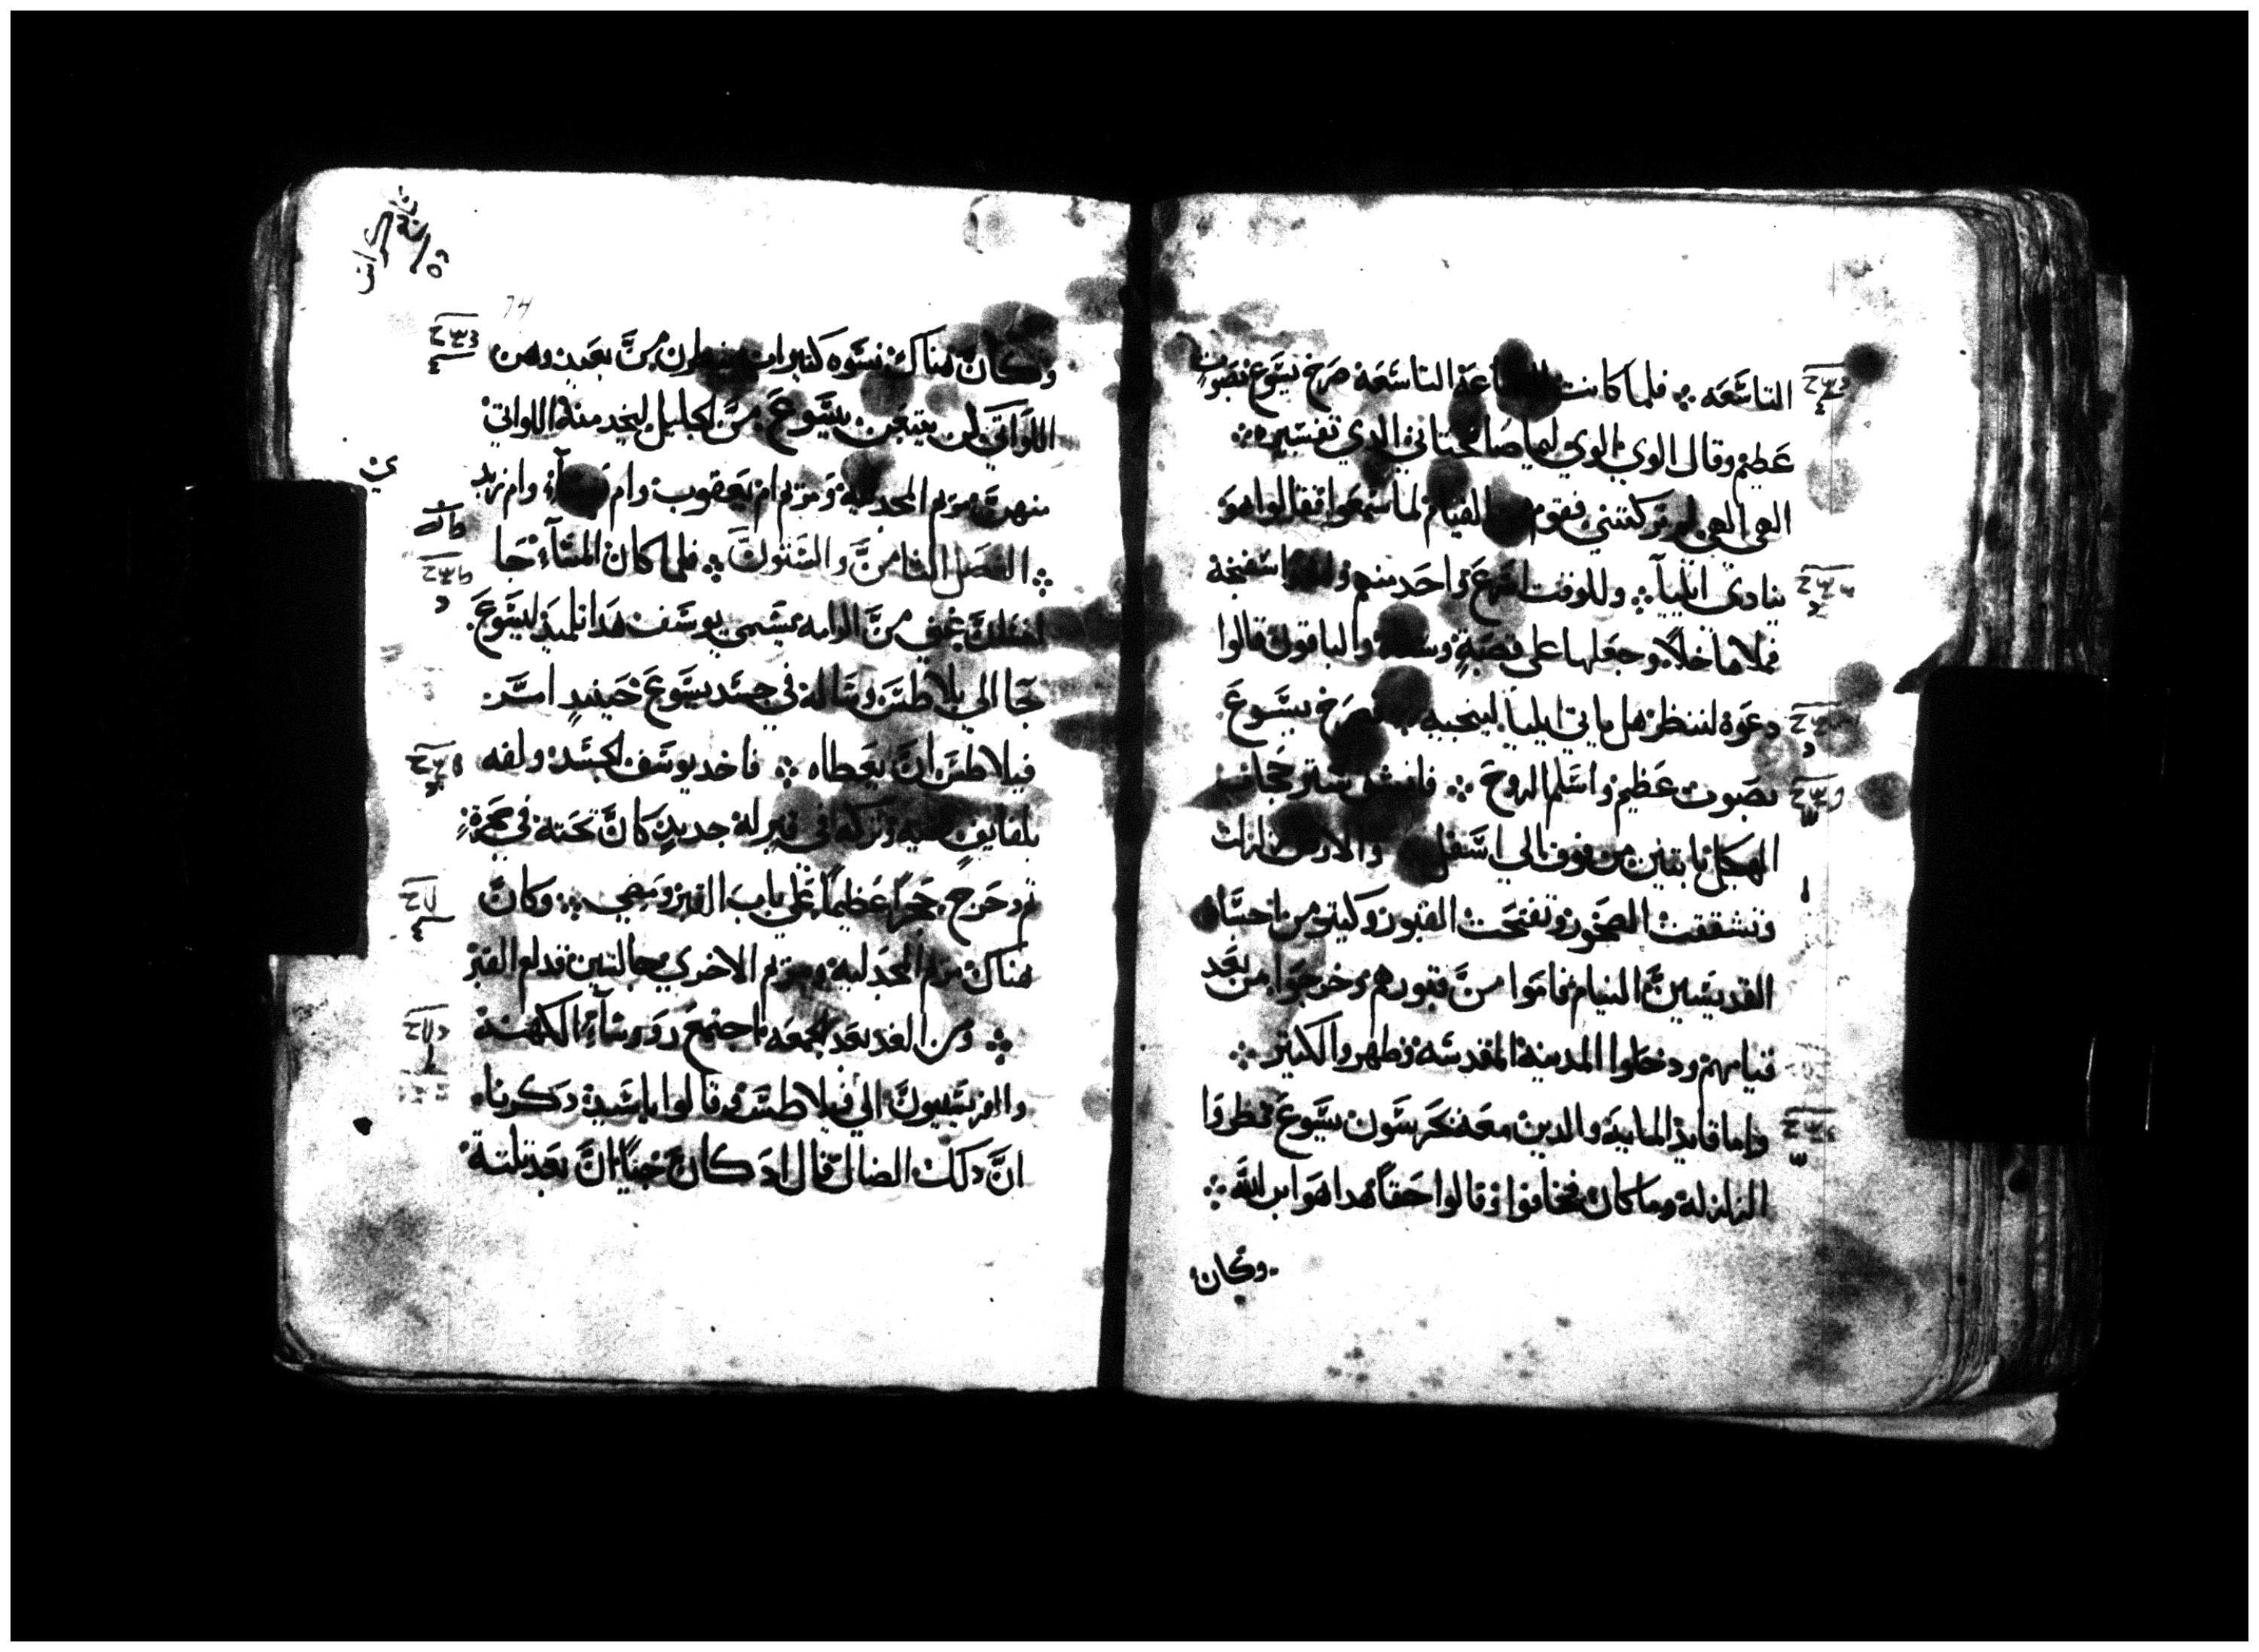 التاسعه ፨ فلما كانت الساعة التاسعه صرخ يسوع بصوت
عظيم وقال الوي الوي ليما صاختاني الدي تفسيره
الهي الهي لم تركتني فقوم من القيام لما سمعوا فقالوا هو
ينادي ايليا وللوقت اسرع واحد منهم واخد اسفنجه
فملاها خلاً وجعلها على قصبة وسقاه والباقون قالوا
دعوه لننظر هل ياتي ايليا لينجيه فصرخ يسوع
بصوت عظيم واسلم الروح فانشق ستر حجاب
الهيكل باتنين من فوق الي اسفل والارض تزلزلت
وتشققت الصخور وتفتحت القبور وكتير من اجساد
القديسين النيام قاموا من قبورهم وخرجوا من بعد
قيامتهم ودخلوا المدينة المقدسه وظهروا لكتير
واما قايد المايه والدين معه يحرسون يسوع نظروا
الزلزله وما كان فخافوا وقالوا حقاً هدا هو ابن الله
وكان
وكان هناك نسوه كتيرات ينظرن من بعيد وهن
اللواتي كن يتبعن يسوع من الجليل ليخدمنه اللواتي
منهن مريم المجدليه ومريم ام يعقوب وام يوسا وام زبدي
الفصل التامن والستون فلما كان المسآء جا
انسان غني من الرامه يسمى يوسف هدا تلميد ليسوع
جا الي بلاطس وساله في جسد يسوع حينيدٍ امر
فيلاطس ان يعطاه فاخد يوسف الجسد ولفه
بلفايف نقيه وتركه في قبر له جديدٍ كان نحته في صخرة
تم دحرج حجراً عظيماً على باب القبر ومضي وكان
هناك مريم المجدلية ومريم الاخري جالستين قدام القبر
ومن الغد بعد الجمعه اجتمع روسآء الكهنة
والفريسيون الى فيلاطس وقالوا يا سيد دكرنا
ان دلك الضال قال اد كان حياً ان بعد تلتة